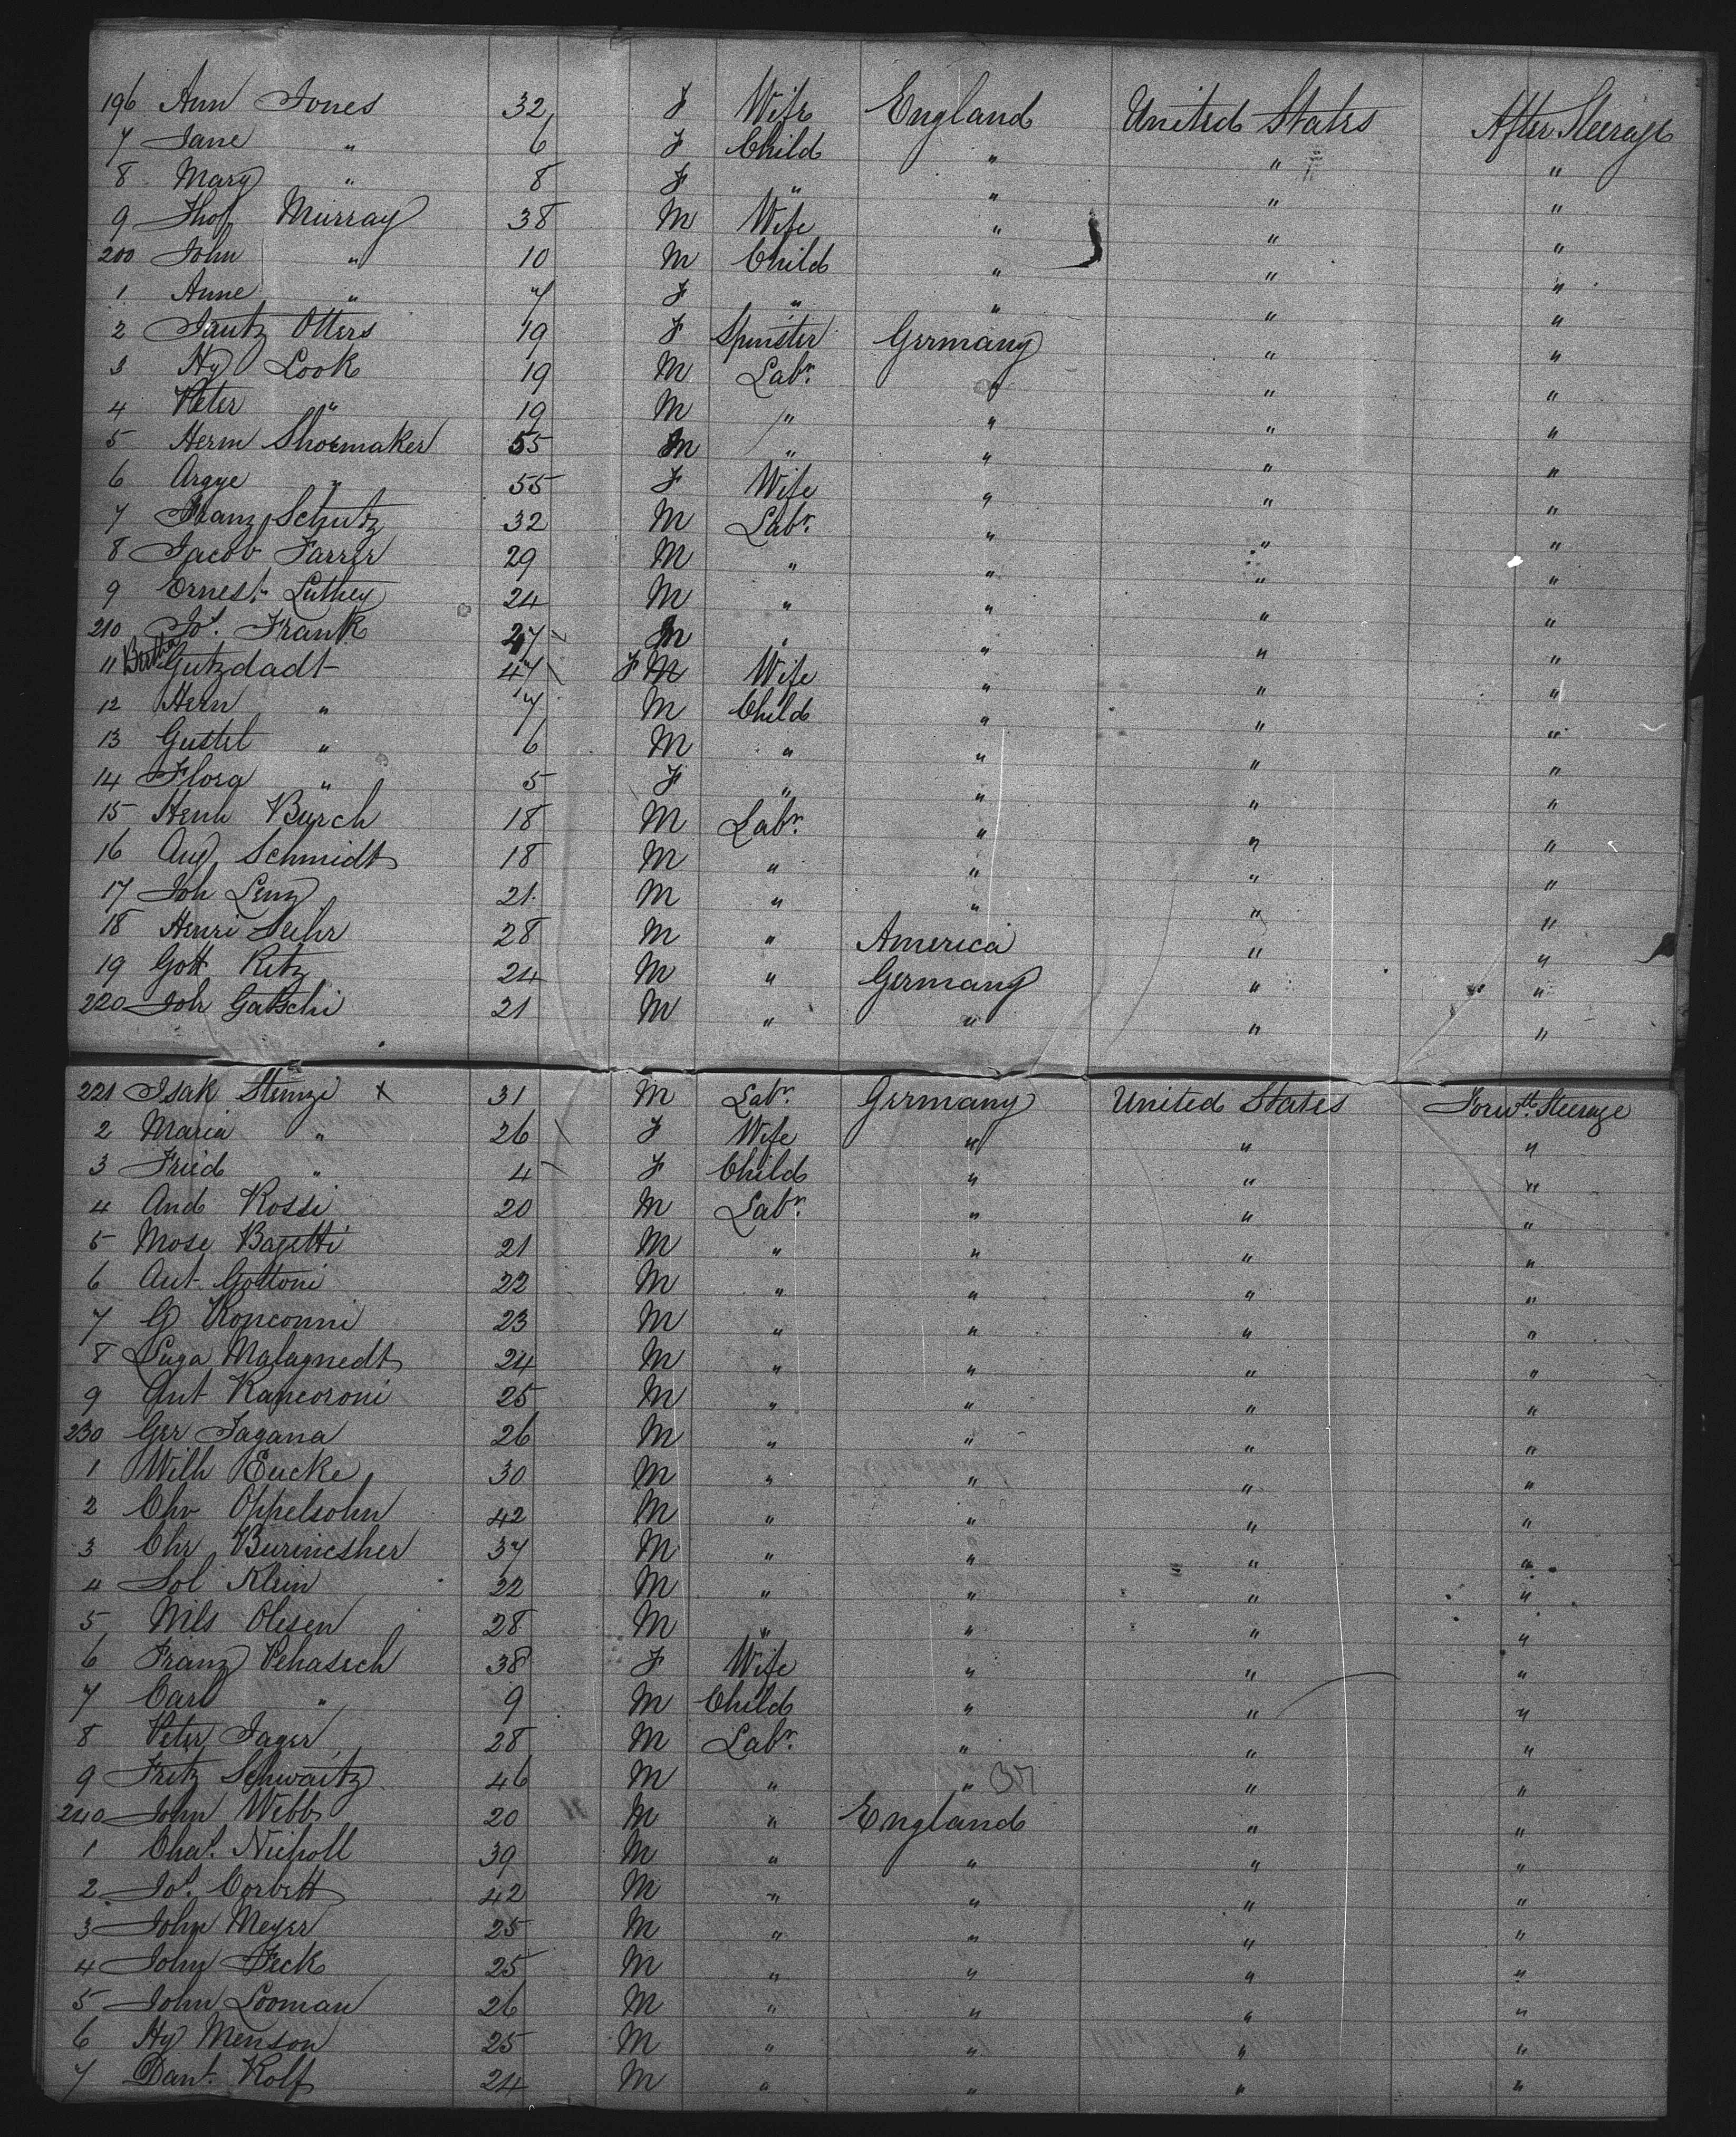 196 Ann Jones 32 F Wife England United States After Steerage
7 Jane " 6 F Child " " "
8 Mary " 8 F " " " "
9 Thos Murray 38 M Wife " " "
200 John " 10 M Child " " "
1 Anne " 7 F " " " "
2 Jautz Otters 19 F Spinster Germany " "
3 Hy Look 19 M Labr. " " "
4 Peter " 19 M " " " "
5 Herm Shoemaker 55 M " " " "
6 Argye " 55 F Wife " " "
7 Franz Schutz 32 M Labr. " " "
8 Jacob Farrer 29 M " " " "
9 Ernest Luthey 24 M " " " "
210 Jos. Frank 27 M " " " "
11 Bertha Gutzdadt 47 F M Wife " " "
12 Hern " 7 M Child " " "
13 Gustel " 6 M " " " "
14 Flora " 5 F " " " "
15 Henh Burch 18 M Labr. " " "
16 Aug Schmidt 18 M " " " "
17 Joh Lenz 21 M " " " "
18 Henri Suhr 28 M " America " "
19 Gott Ritz 24 M " Germany " "
220 Joh Gatschi 21 M " " " "
221 Isak Stemzi x 31 M Labr. Germany United States Forwd. Steerage
2 Maria " 26 F Wife " " "
3 Fried " 4 F Child " " "
4 And Rossi 20 M Labr. " " "
5 Mose Bagetti 21 M " " " "
6 Ant Gottoni 22 M " " " "
7 G Ronconni 23 M " " " "
8 Luga Malagnedt 24 M " " " "
9 Ant Rancoroni 25 M " " " "
230 Ger Tagana 26 M " " " "
1 Wilh Eucke 30 M " " " "
2 Chr Oppelsohn 42 M " " " "
3 Chr Burincsher 37 M " " " "
4 Sol Klein 22 M " " " "
5 Nils Olesen 28 M " " " "
6 Franz Pehasech 38 F Wife " " "
7 Carl " 9 M Child " " "
8 Peter Jager 28 M Labr. " " "
9 Fritz Schwaitz 46 M " " " "
240 John Webb 20 M " England " "
1 Chas. Nicholl 39 M " " " "
2 Jos. Corbett 42 M " " " "
3 John Meyer 25 M " " " "
4 John Feck 25 M " " " "
5 John Looman 26 M " " " "
6 Hy Menson 25 M " " " "
7 Danl. Rolf 24 M " " " "